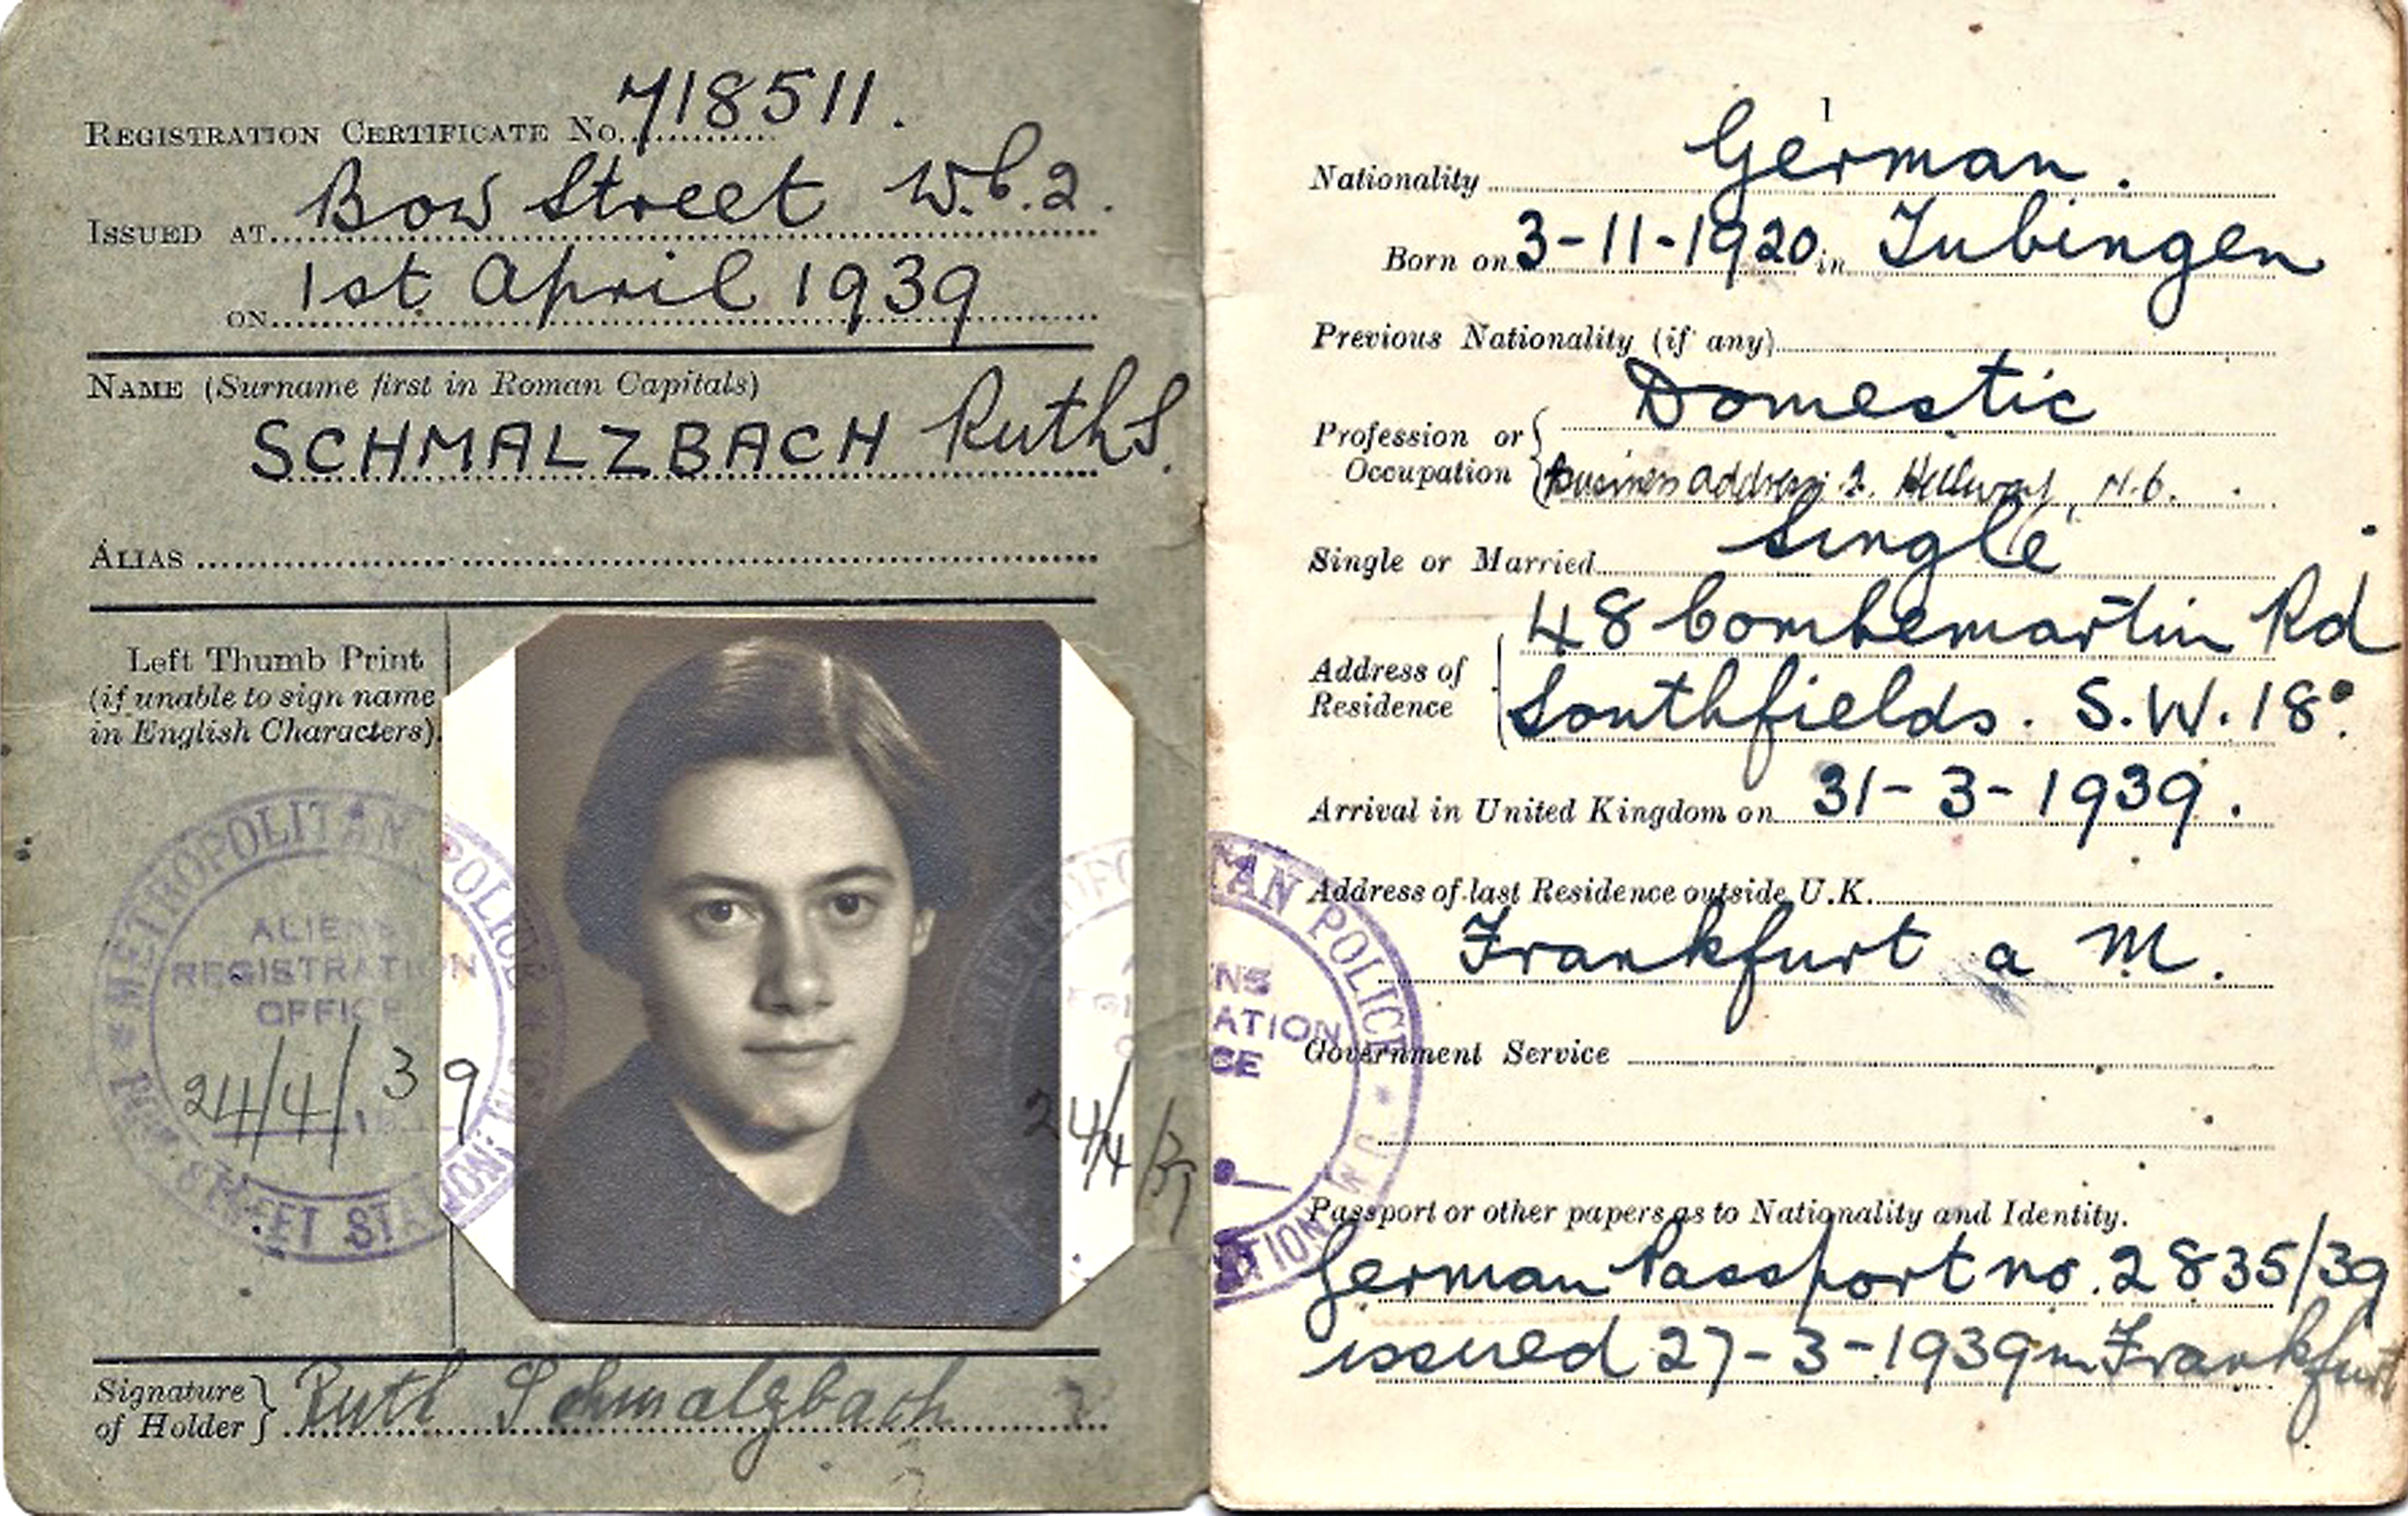 REGISTRATION CERTIFICATE No. 718511.
ISSUED AT Bow Street W.C.2.
ON 1st April 1939
NAME (Surname first in Roman Capitals)
SCHMALZBACH Ruth S.
ALIAS
Left Thumb Print
(if unable to sign name
in English Characters).
METROPOLITAN POLICE
ALIENS
REGISTRATION
OFFICE
24/4/39
STREET STATION
24/4/39
Signature
of Holder
Ruth Schmalzbach
1
Nationality German.
Born on 3-11-1920 in Tubingen
Previous Nationality (if any)
Profession or
Occupation
Domestic
business address: 2. N.6.
Single or Married Single
Address of
Residence
48 Combemartin Rd
Southfields. S.W.18.
Arrival in United Kingdom on 31-3-1939.
Address of last Residence outside U.K.
Frankfurt a M.
TAN POLICE
ENS
ATION
CE
Government Service
Passport or other papers as to Nationality and Identity.
German Passport no. 2835/39
issued 27-3-1939 in Frankfurt